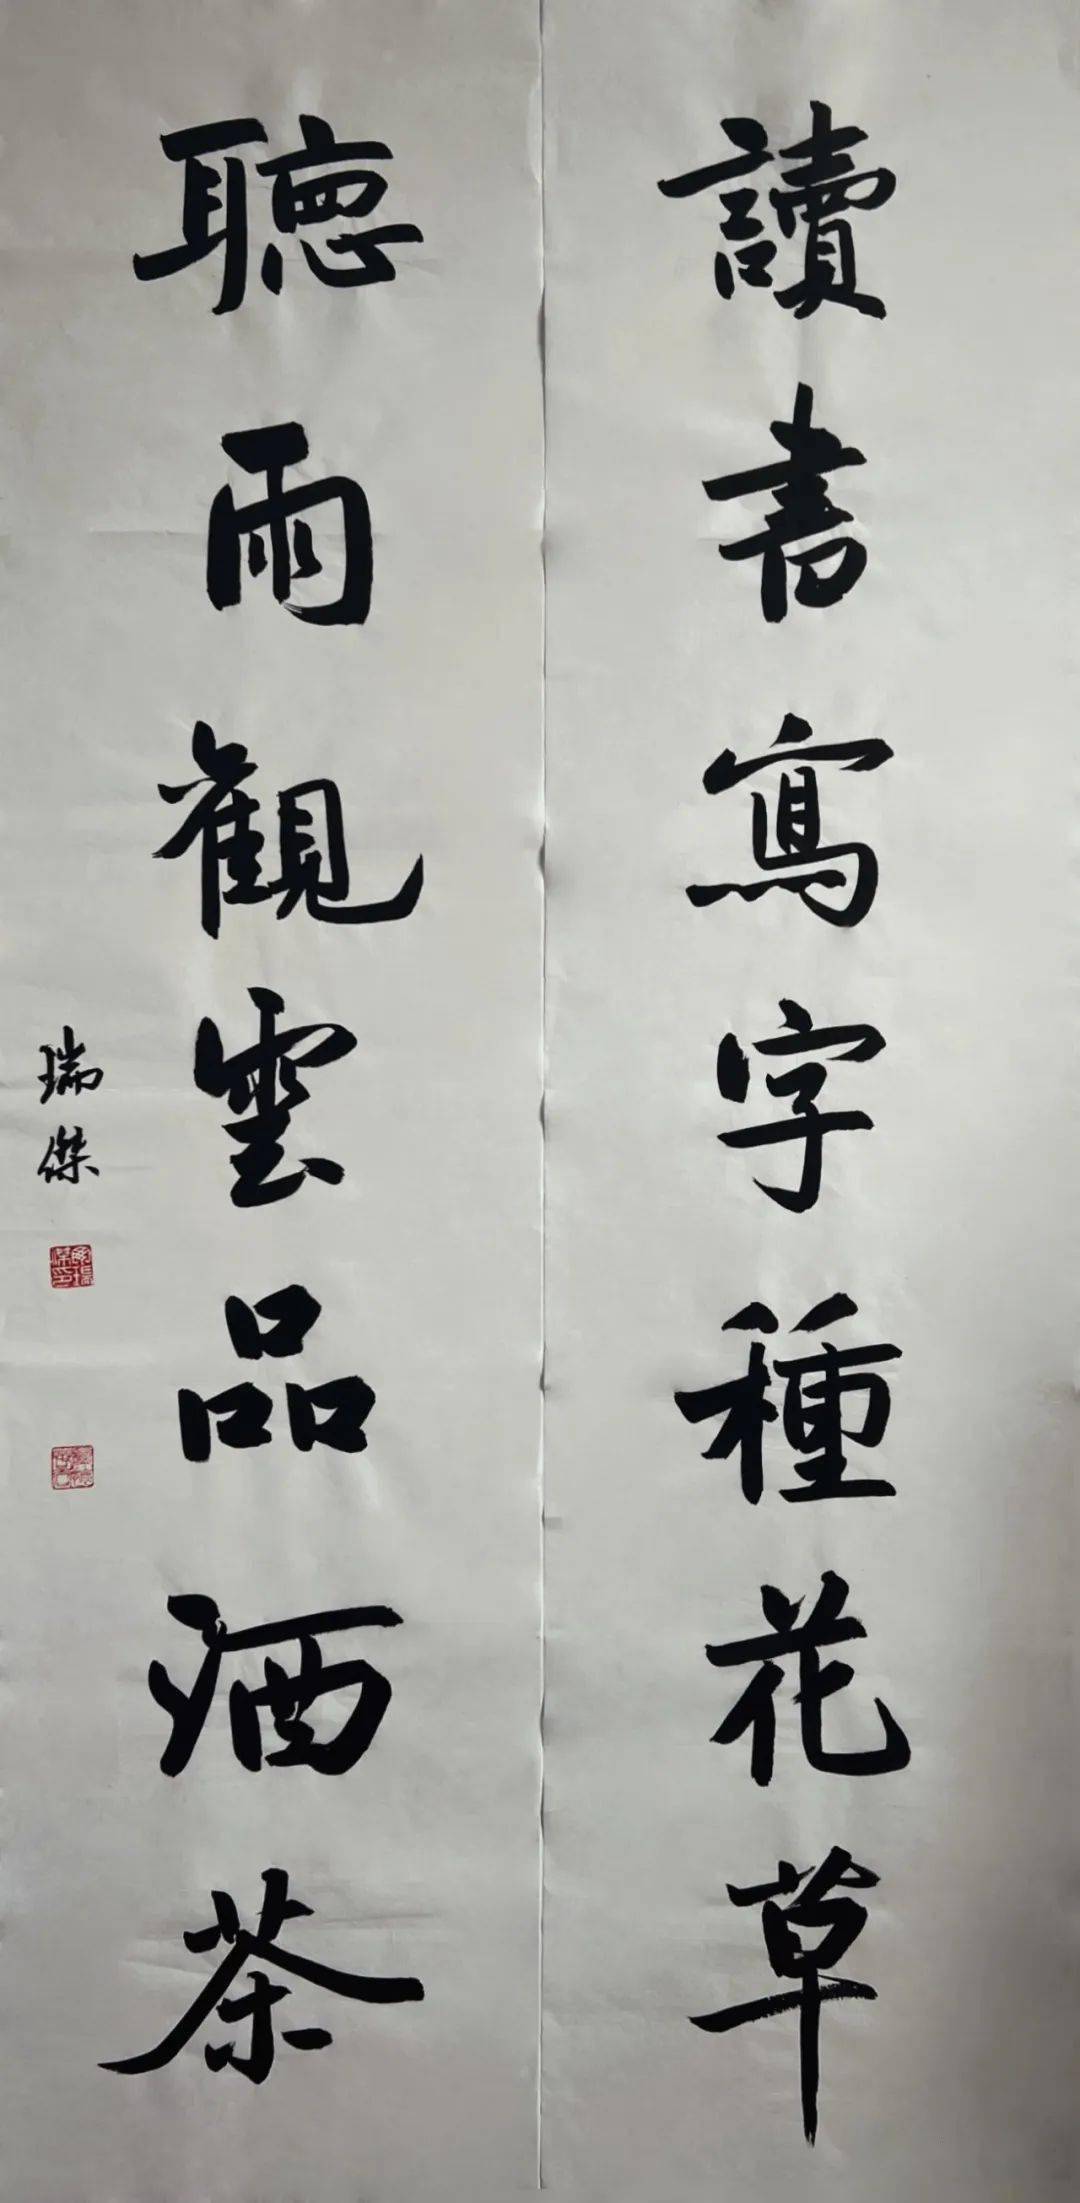 讀書寫字種花草
聽雨觀雲品酒茶
瑞傑